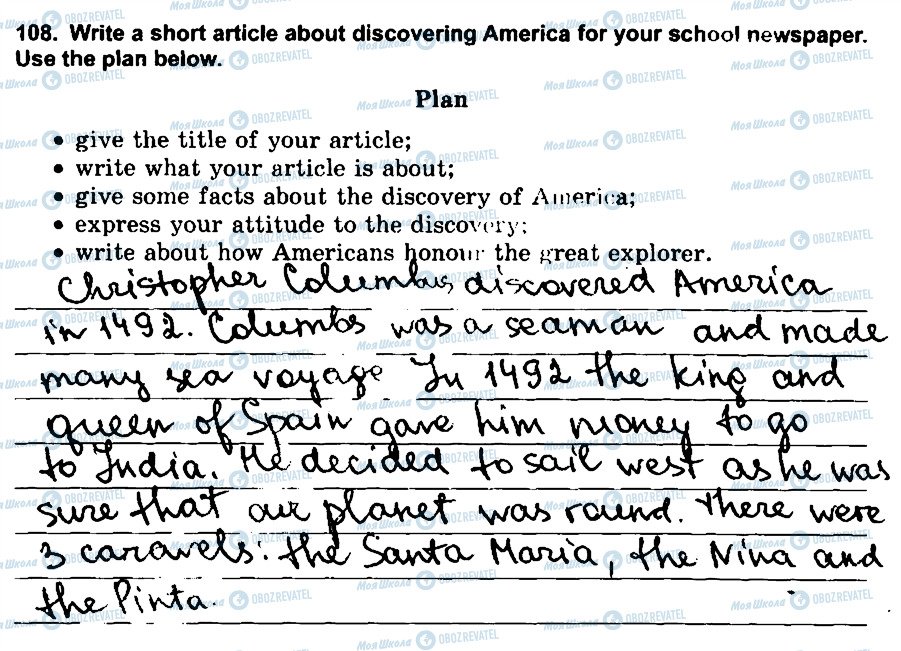 108. Write a short article about discovering America for your school newspaper.
Use the plan below.
Plan
• give the title of your article;
• write what your article is about;
• give some facts about the discovery of America;
• express your attitude to the discovery;
• write about how Americans honour the great explorer.
Christopher Columbus discovered America
in 1492. Columbs was a seaman and made
many sea voyage. In 1492 the king and
queen of Spain gave him money to go
to India. He decided to sail west as he was
sure that our planet was round. There were
3 caravels: the Santa Maria, the Nina and
the Pinta.
МояШкола OBOZREVATEL